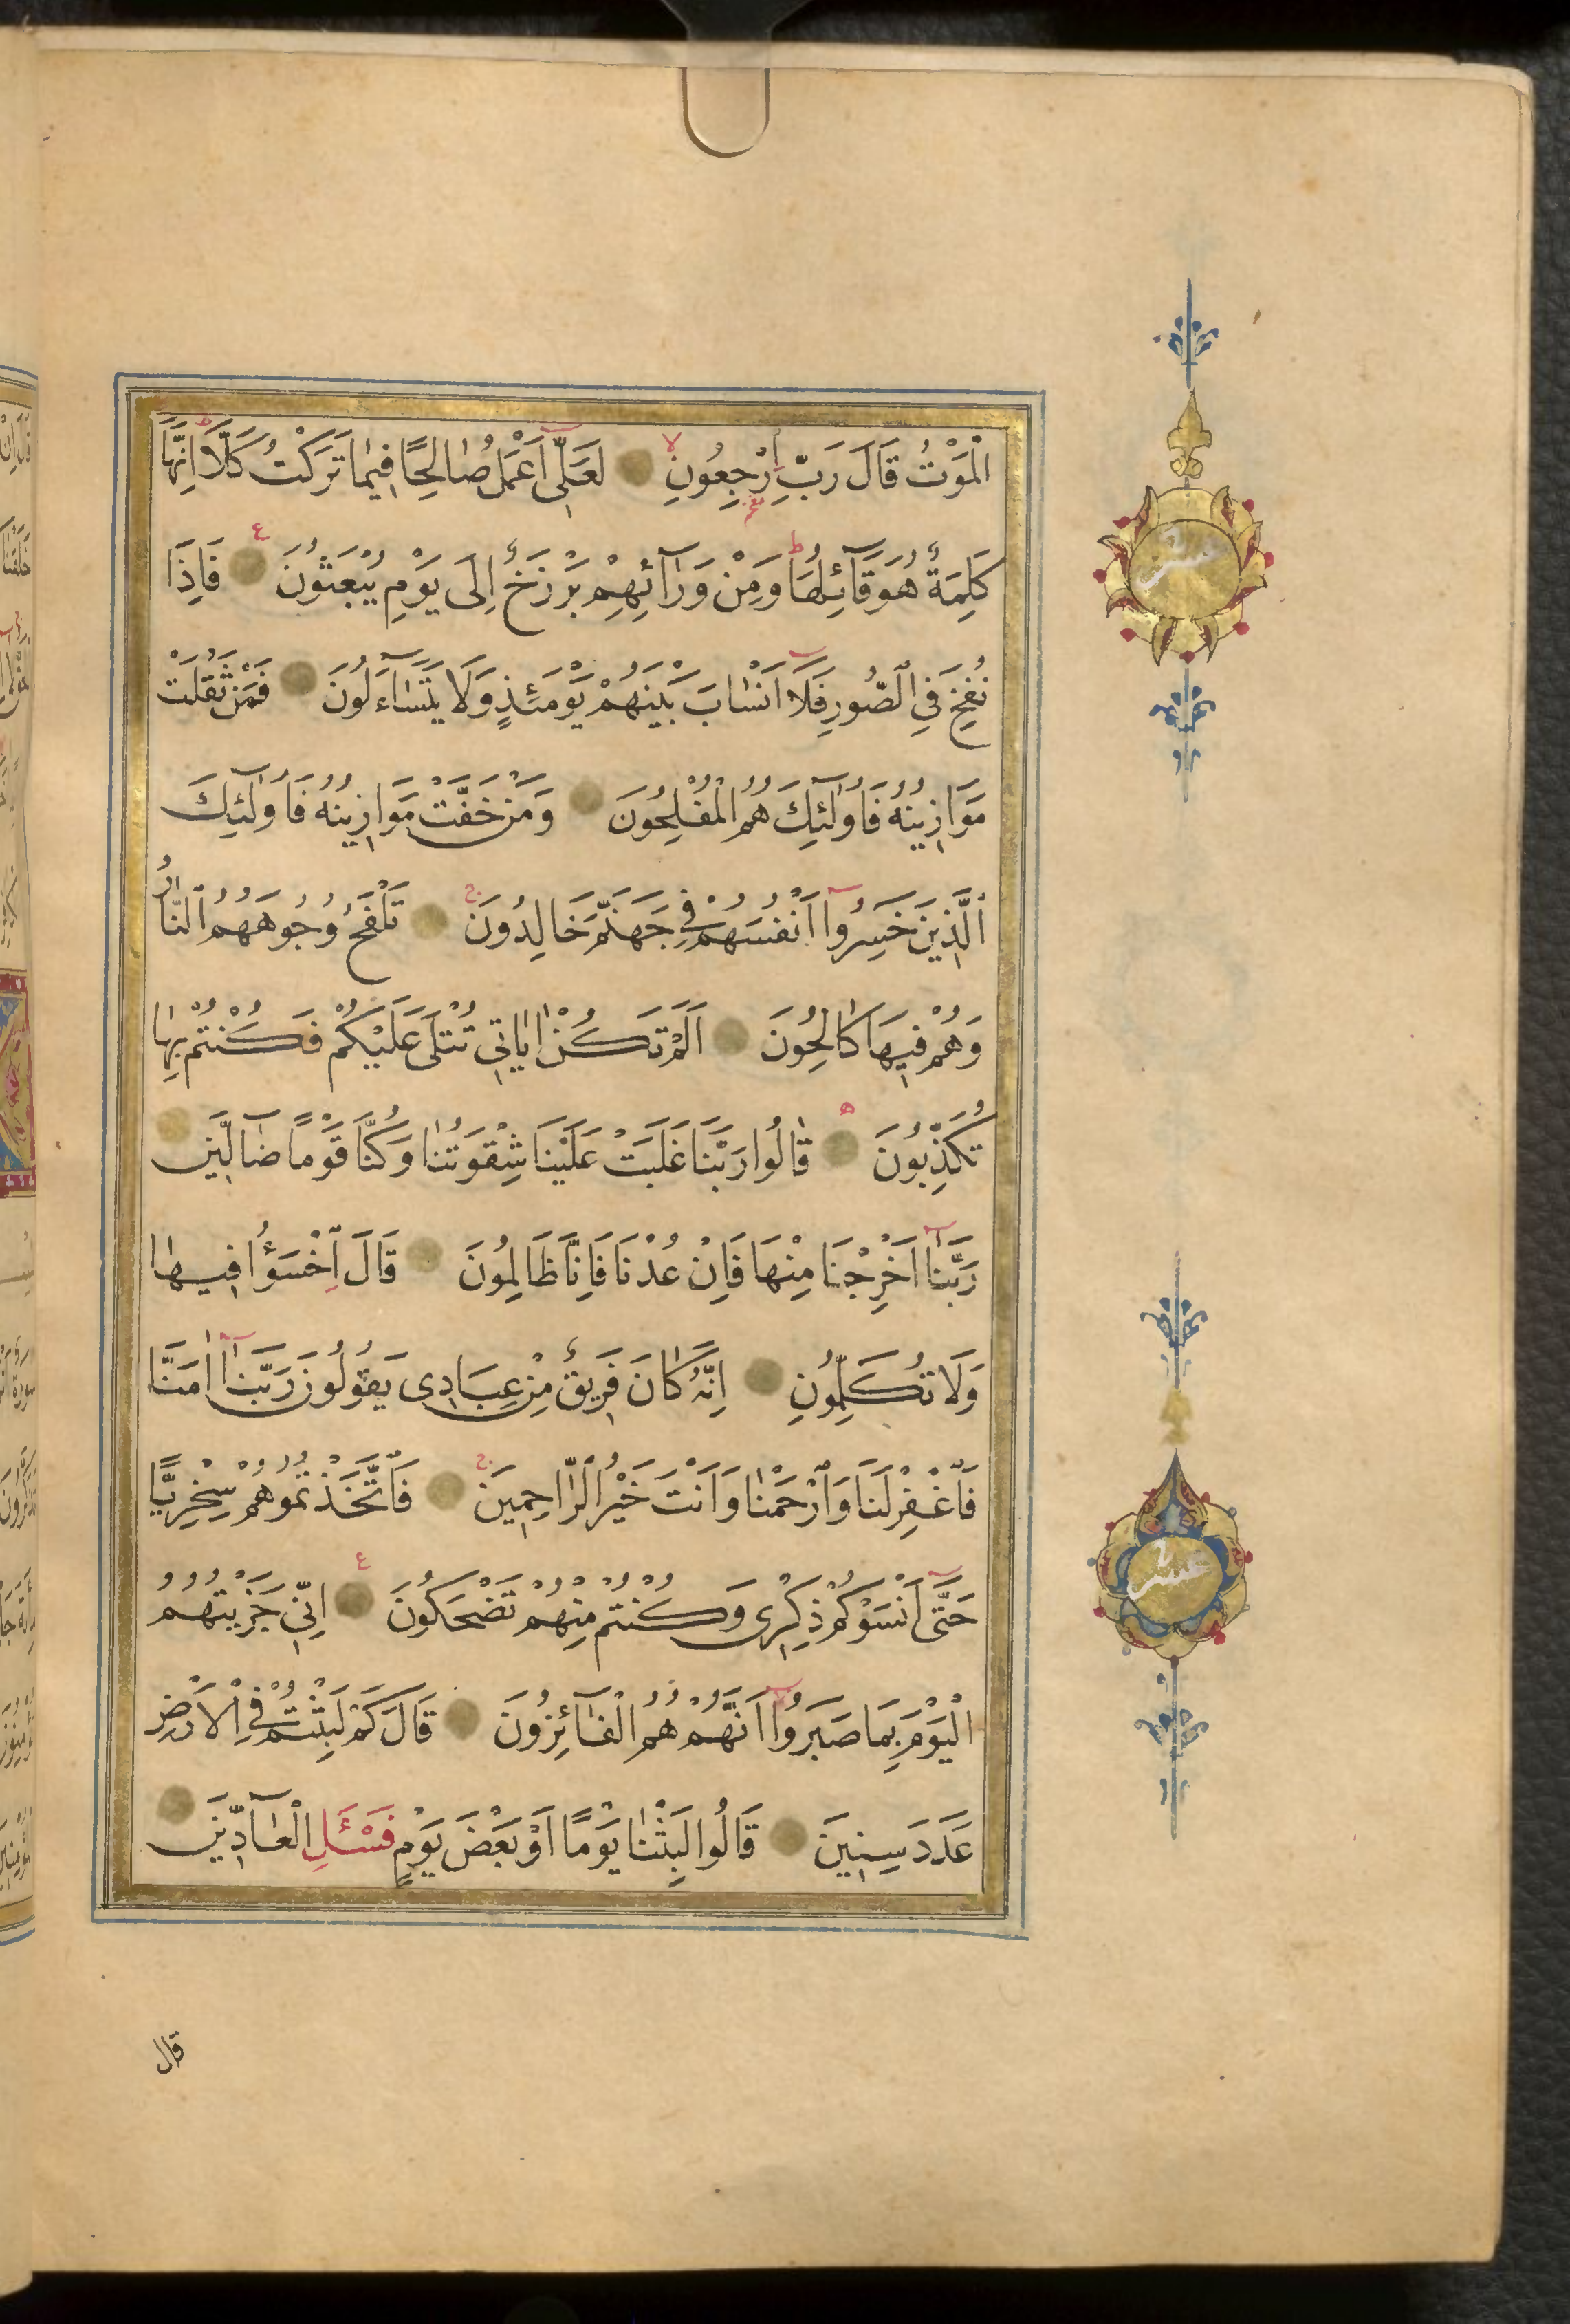 الْمَوْتُ قَالَ رَبِّ ارْجِعُونِ لَعَلِّى اَعْمَلُ صَالِحًا فِيمَا تَرَكْتُ كَلَّا اِنَّهَا
عشر
كَلِمَةٌ هُوَ قَآئِلُهَا وَمِنْ وَرَآئِهِمْ بَرْزَخٌ اِلَى يَوْمِ يُبْعَثُونَ فَاِذَا
نُفِخَ فِى الصُّورِ فَلَا اَنْسَابَ بَيْنَهُمْ يَوْمَئِذٍ وَلَا يَتَسَآءَلُونَ فَمَنْ ثَقُلَتْ
مَوَازِينُهُ فَاُولٰٓئِكَ هُمُ الْمُفْلِحُونَ وَمَنْ خَفَّتْ مَوَازِينُهُ فَاُولٰٓئِكَ
الَّذِينَ خَسِرُوا اَنْفُسَهُمْ فِى جَهَنَّمَ خَالِدُونَ تَلْفَحُ وُجُوهَهُمُ النَّارُ
وَهُمْ فِيهَا كَالِحُونَ اَلَمْ تَكُنْ اٰيَاتِى تُتْلَى عَلَيْكُمْ فَكُنْتُمْ بِهَا
تُكَذِّبُونَ قَالُوا رَبَّنَا غَلَبَتْ عَلَيْنَا شِقْوَتُنَا وَكُنَّا قَوْمًا ضَآلِّينَ
رَبَّنَا اَخْرِجْنَا مِنْهَا فَاِنْ عُدْنَا فَاِنَّا ظَالِمُونَ قَالَ اخْسَؤُا فِيهَا
وَلَا تُكَلِّمُونِ اِنَّهُ كَانَ فَرِيقٌ مِنْ عِبَادِى يَقُولُونَ رَبَّنَا اٰمَنَّا
فَاغْفِرْ لَنَا وَارْحَمْنَا وَاَنْتَ خَيْرُ الرَّاحِمِينَ فَاتَّخَذْتُمُوهُمْ سِخْرِيًّا
حَتَّى اَنْسَوْكُمْ ذِكْرِى وَكُنْتُمْ مِنْهُمْ تَضْحَكُونَ اِنِّى جَزَيْتُهُمُ
عشر
الْيَوْمَ بِمَا صَبَرُوا اَنَّهُمْ هُمُ الْفَآئِزُونَ قَالَ كَمْ لَبِثْتُمْ فِى الْاَرْضِ
عَدَدَ سِنِينَ قَالُوا لَبِثْنَا يَوْمًا اَوْ بَعْضَ يَوْمٍ فَسْئَلِ الْعَآدِّينَ
قال